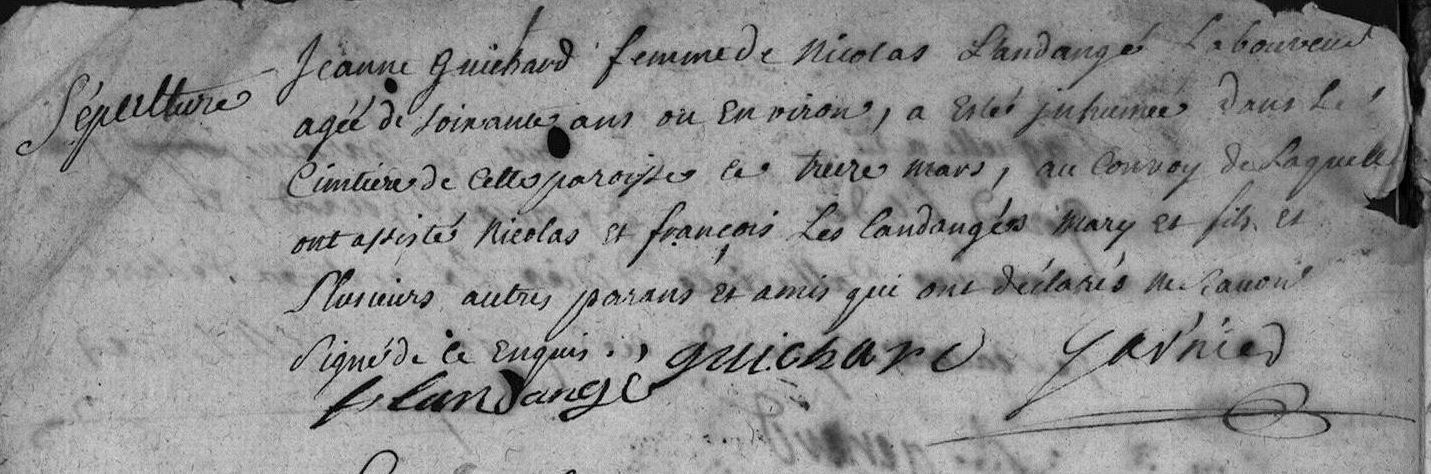 Jeanne Guichard femme de Nicolas Landangé Laboureur
Sépulture
agée de soixante ans ou Environ, a Esté inhumée dans Le
Cimtiere de Cette paroisse ce treize mars, au Convoy de Laquelle
ont assisté Nicolas et françois Les Landangés Mary et fils et
Plusieurs autres parans et amis qui ont déclarés ne scavoir
signé de ce Enquis.
guichard garnier
f landangé